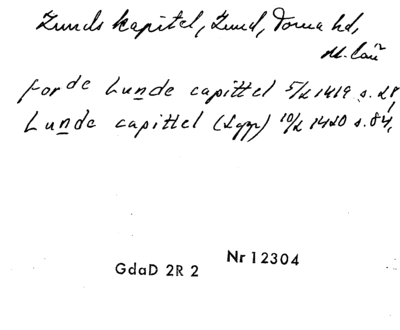 Lunds kapitel, Lund, Torna hd,
M. län
for de Lunde capittel 5/2 1419 s. 28,
Lunde capittel 10/2 1420 s. 84,
Nr 12304
GdaD 2R 2